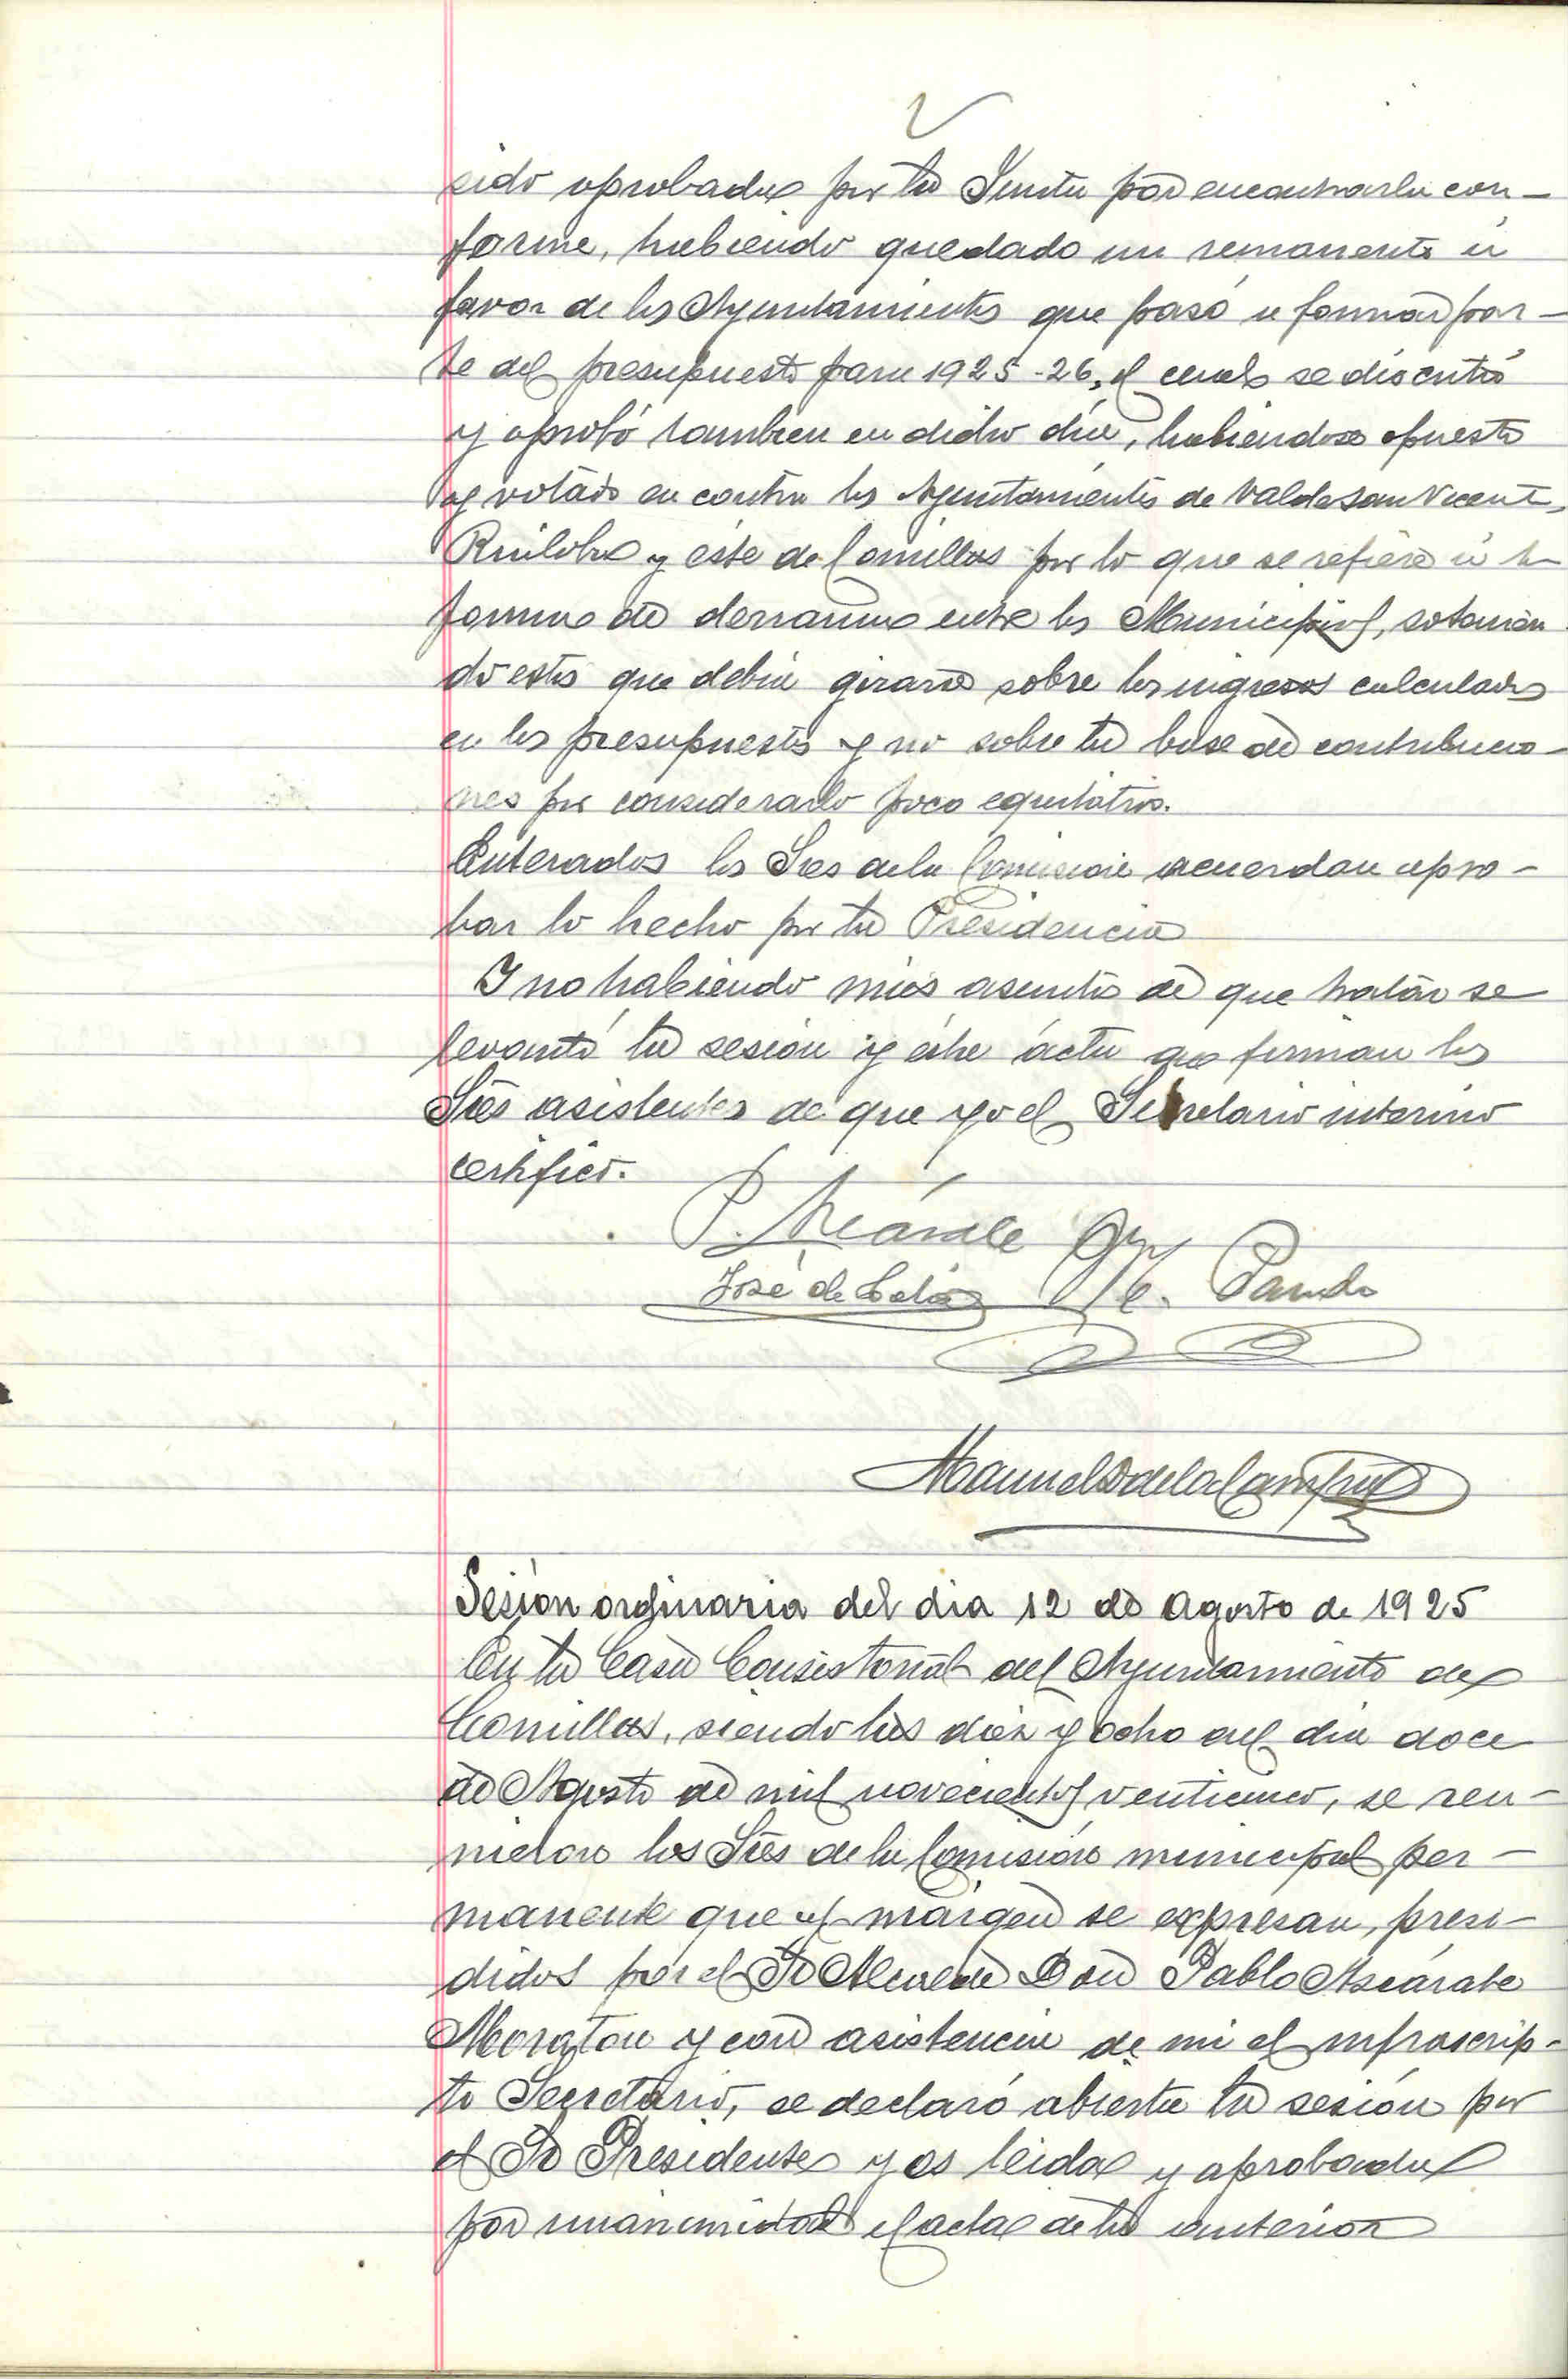 sido aprobada por la Junta por encontrarla con-
forme, habiendo quedado un remanente á
favor de los Ayuntamientos que pasó a formar par-
te del presupuesto para 1925-26, el cual se discutió
y aprobó tambien en dicho día, habiendose opuesto
y votado en contra los Ayuntamientos de Val de San Vicente,
Ruiloba y éste de Comillas por lo que se refiere á la
forma de derrama entre los Municipios,
do estos que debia girarse sobre los ingresos calculados
en los presupuestos y no sobre la base de contribucio-
nes por considerarlo poco equitativo.
Enterados los Sres de la Comisión acuerdan apro-
bar lo hecho por la Presidencia
Y no habiendo más asuntos de que tratar se
levantó la sesión y ésta ácta que firman los
Sres asistentes de que yo el Secretario interino
certifico.
P. Azcárate
José de C. Pando
Manuel D de la Campa
Sesión ordinaria del dia 12 de Agosto de 1925
En la Casa Consistorial del Ayuntamiento de
Comillas, siendo las diez y ocho del dia doce
de Agosto de mil novecientos venticinco, se reu-
nieron los Sres de la Comisión municipal per-
manente que al márgen se expresan, presi-
didos por el Sr Alcalde Don Pablo Azcárate
Moraton y con asistencia de mi el infrascrip-
to Secretario, se declaró abierta la sesión por
el Sr Presidente y es leida y aprobada
por unanimidad el acta de la anterior